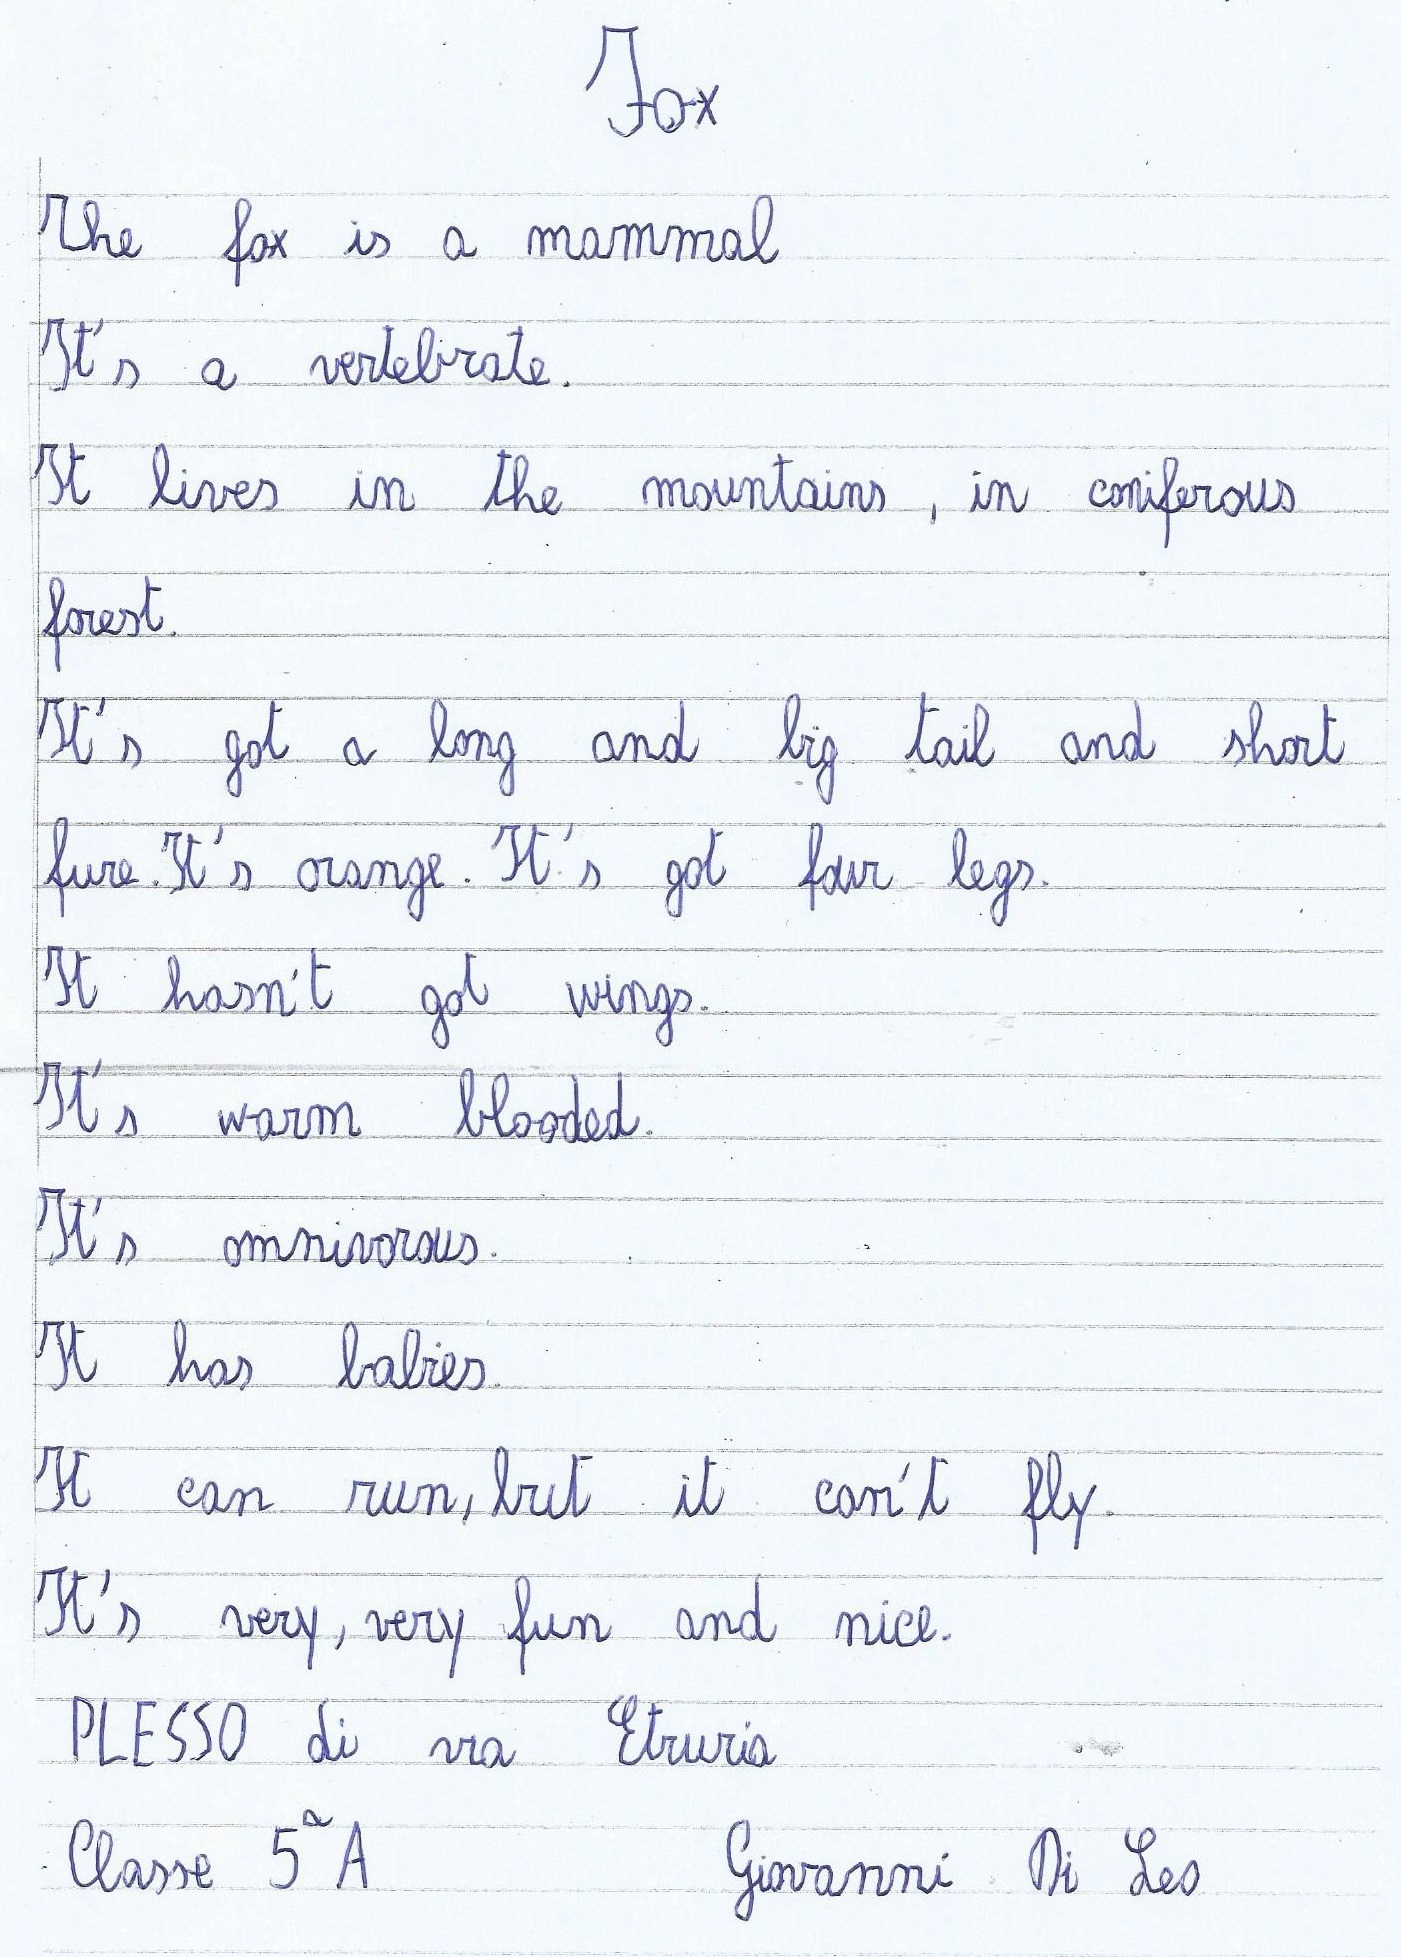 Fox
The fox is a mammal
It's a vertebrate.
It lives in the mountains, in coniferous
forest.
It's got a long and big tail and short
fure. It's orange. It's got four legs.
It hasn't got wings.
It's warm blooded.
It's omnivorous.
It has babies.
It can run, but it can't fly.
It's very, very fun and nice.
PLESSO di via Etruria
Classe 5ª A Giovanni Di Leo